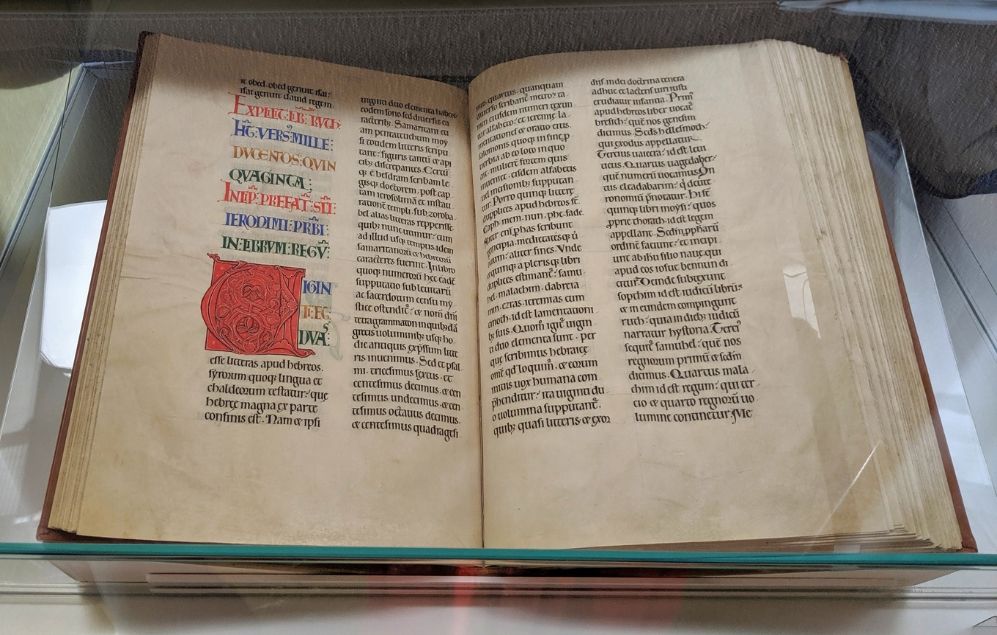 it obed. obed genuit isai:
isai genuit david regem.
EXPLICIT LIB RUTH
HT: VERS MILLE:
DUCENTOS: QUIN
QUAGINTA:
INCIP: PREFAT: SCI
IERONIMI: PRBI
IN LIBRUM: REGU
VIGIN
TI: ET
DUAS
esse litteras apud hebreos.
syrorum quoq; lingua et
chaldeorum testatur: que
hebreę magna ex parte
confinis est. Nam et ipsi
viginti duo elementa habent
eodem sono sed diversis ca
racterib;. Samaritani eti
am pentateucum moy
si totidem litteris scripti
tant: figuris tantū et api
cib; discrepantes. Certū
q; ē hesdram scribam le
gisq; doctorem. post cap
tam ierosolimā et instau
rationē templi sub zoroba
bel alias litteras repperisse
quib; nunc utimur: cum
ad illud usq; tempus idem
samaritanorū et hebreorū
caracteres fuerint. In libro
quoq; numerorū hec eadē
supputatio sub levitarū
ac sacerdotum censu my
stice ostendit. et nom dni
tetragrammaton in quibusdā
grecis voluminib; usq; ho
die antiquis expssum litte
ris invenimus. Sed et psal
mi. tricesimus sextus. et
centesimus decimus. et cen
tesimus undecimus. et cen
tesimus octavus decimus.
et centesimus quadragesi
mus quartus. quanquam
diverso scribant metro. ta
men eiusdem numeri texun
tur alfabeto. et ieremię la
mentationes et oratio eius.
salomonis quoq; in fine p
verbia ab eo loco in quo
ait. mulierē fortem quis
inveniet: eisdem alfabetis
vel incisionib; supputan
tur. Porro quinq; litterę
duplices apud hebreos st.
caph. mem. nun. phe. sade.
Aliter enī p has scribunt
principia. medietatesq; v
borum: aliter fines. Unde
et quinq; a plerisq; libri
duplices estimant. samu
hel. malachem. dabreia
mim. ezras. ieremias cum
cinoth. id est lamentationi
b; suis. Quom igit vigin
ti duo elementa sunt. per
que scribimus hebraicę
omē qd loquim. et eorum
initiis vox humana com
phenditur: ita viginti du
o volumina supputant.
quib; quasi litteris et exor
diis. in dei doctrina tenera
adhuc et lactens viri iusti
eruditur infantia. Prim
apud hebreos liber vocat
bresith: quē nos genesim
dicimus. Scds hellesmoth:
qui exodus appellatur.
Tercius vaiecra: id est levi
ticus. Quartus vagedaber:
quē numeri vocamus. Qn
tus elleadabarim: q deute
ronomiū pnotatur. Hi st
quinq; libri moysi: quos
pprie thorath. id est legem
appellant. Scdm pphetarū
ordinē faciunt. et incipi
unt ab ihu filio nave. qui
apud eos iosue bennun di
citur. Deinde subtexunt
sopthim id est iudicū librū:
et in eundem compingunt
ruth: quia in dieb; iudicū
narratur hystoria. Terci
sequit samuhel: quē nos
regnorum primū et scdm
dicimus. Quartus mala
chim id est regum: qui ter
cio et quarto regnorū vo
lumine continetur. Me